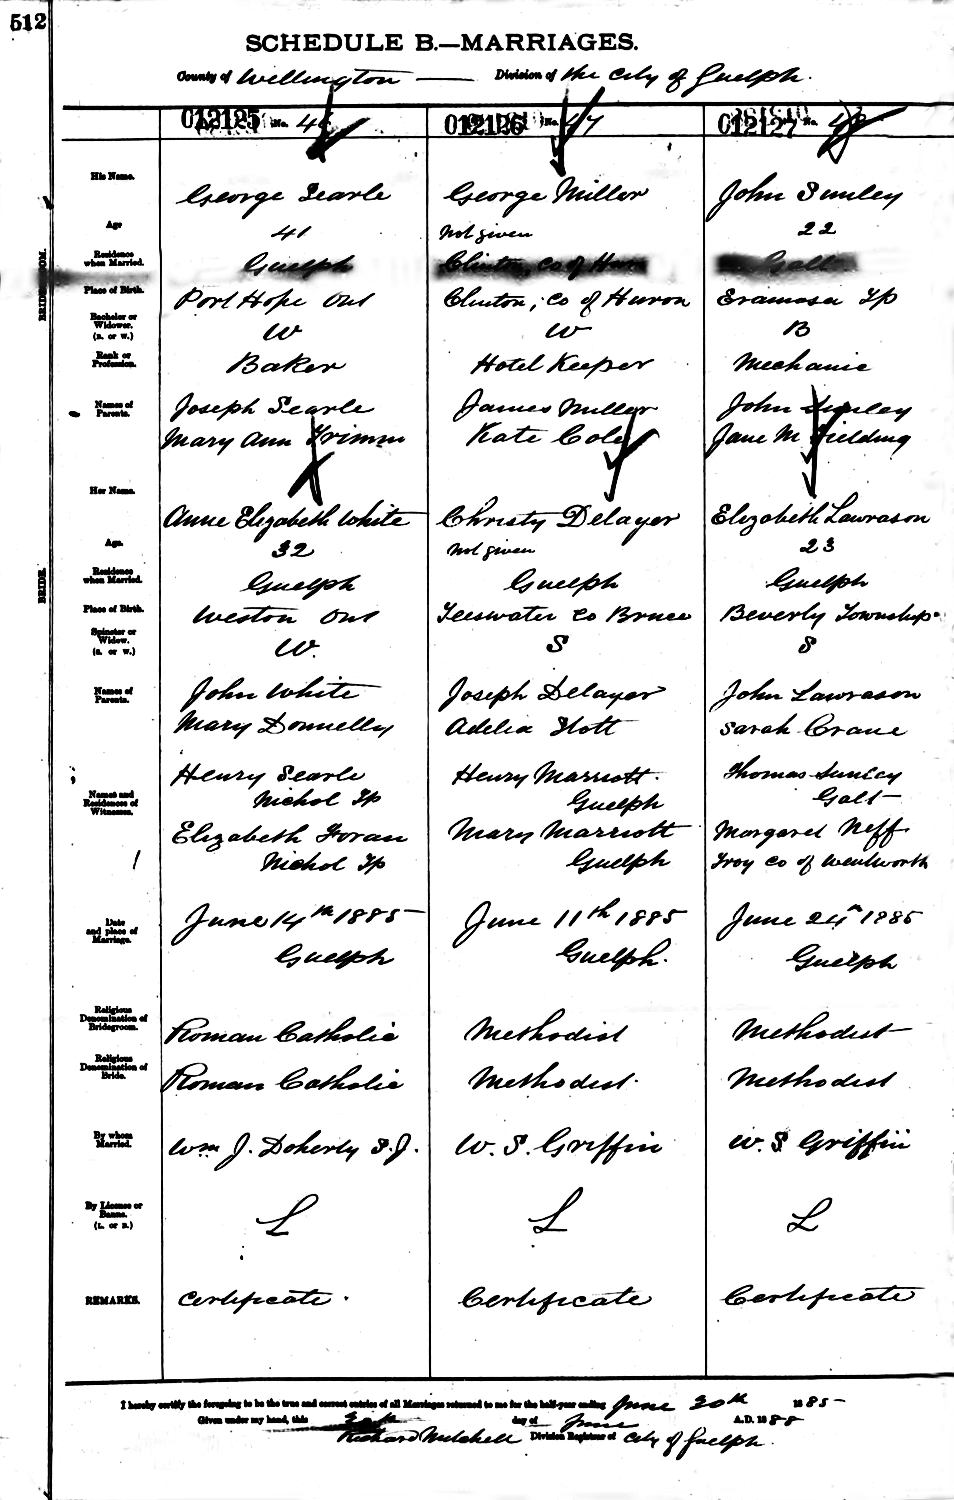 512
SCHEDULE B.—MARRIAGES.
County of Wellington — Division of the City of Guelph.
012125 No. 46 012126 No. 47 012127 No. 48
His Name. George Searle George Miller John Sunley
Age 41 Not given 22
BRIDEGROOM.
Residence when Married. Guelph Clinton, Co of Huron Galt
Place of Birth. Port Hope Ont Clinton, Co of Huron Eramosa Tp
Bachelor or Widower. (B. or W.) W W B
Rank or Profession. Baker Hotel Keeper Mechanic
Names of Parents. Joseph Searle James Miller John Sunley
Mary Ann Trimm Kate Cole Jane M Fielding
Her Name. Anne Elizabeth White Christy Delayer Elizabeth Lawrason
Age. 32 Not given 23
BRIDE.
Residence when Married. Guelph Guelph Guelph
Place of Birth. Weston Ont Teeswater Co Bruce Beverly Township
Spinster or Widow. (S. or W.) W. S S
Names of Parents. John White Joseph Delayer John Lawrason
Mary Donnelly Adelia Stott Sarah Crane
Names and Residences of Witnesses. Henry Searle Henry Marriott. Thomas Sunley
Nichol Tp Guelph Galt
Elizabeth Foran Mary Marriott Margaret Neff
Nichol Tp Guelph Troy Co of Wentworth
Date and place of Marriage. June 14th 1885 June 11th 1885 June 24th 1885
Guelph Guelph. Guelph
Religious Denomination of Bridegroom. Roman Catholic Methodist Methodist
Religious Denomination of Bride. Roman Catholic Methodist. Methodist
By whom Married. Wm J. Doherty S.J. W. S. Griffin W. S Griffin
By License or Banns. (L. or B.) L L L
REMARKS. Certificate. Certificate Certificate
I hereby certify the foregoing to be the true and correct entries of all Marriages returned to me for the half-year ending June 30th 1885
Given under my hand, this 30th day of June A.D. 1885
Richard Mitchell Division Registrar of City of Guelph.